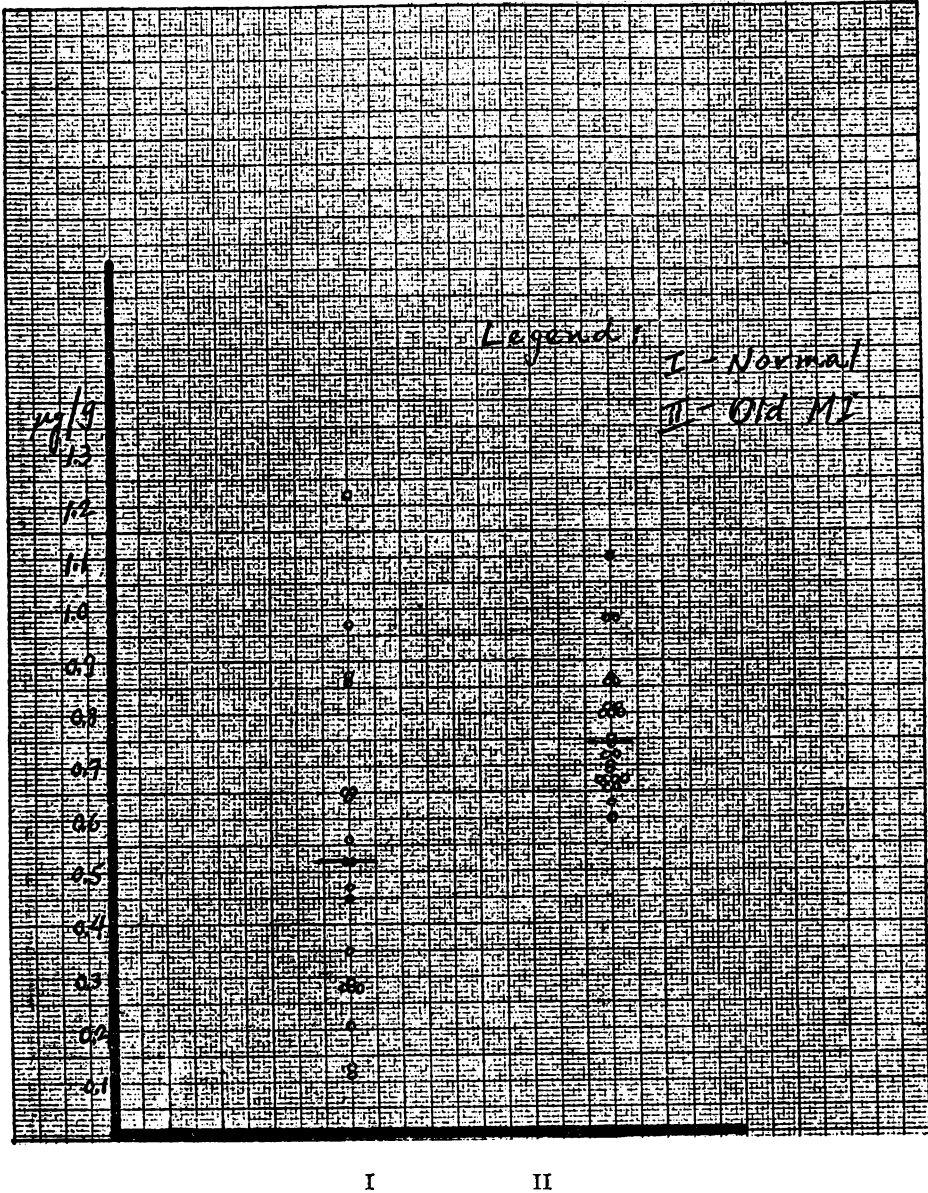 Legend:
I - Normal
II - Old MI
µg/g
1.3
1.2
1.1
1.0
0.9
0.8
0.7
0.6
0.5
0.4
0.3
0.2
0.1
I II